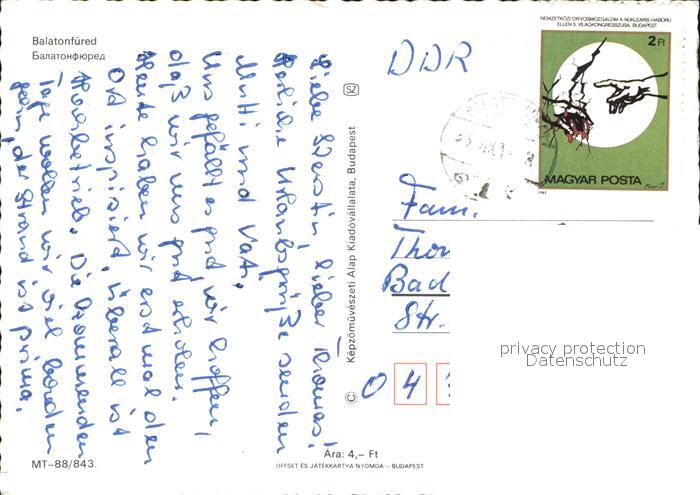 Balatonfüred
Балатонфюред
Liebe Kerstin, lieber Thomas!
Herzliche Urlaubsgrüße senden
Mutti und Vati.
Uns gefällt es gut, wir hoffen,
daß wir uns gut erholen.
Heute haben wir erst mal den
Ort inspiziert, überall ist
Hochbetrieb. Die kommenden
Tage wollen wir viel baden
gehn, der Strand ist prima.
MT–88/843.
Ára: 4,– Ft
OFFSET ÉS JÁTÉKKÁRTYA NYOMDA – BUDAPEST
© Képzőművészeti Alap Kiadóvállalata, Budapest
SZ
NEMZETKÖZI ORVOSMOZGALOM A NUKLEÁRIS HÁBORÚ
ELLEN 5. VILÁGKONGRESSZUSA, BUDAPEST
2 Ft
MAGYAR POSTA
1985
DDR
Fam.
Thor
Bad
Str.
0 4
privacy protection
Datenschutz